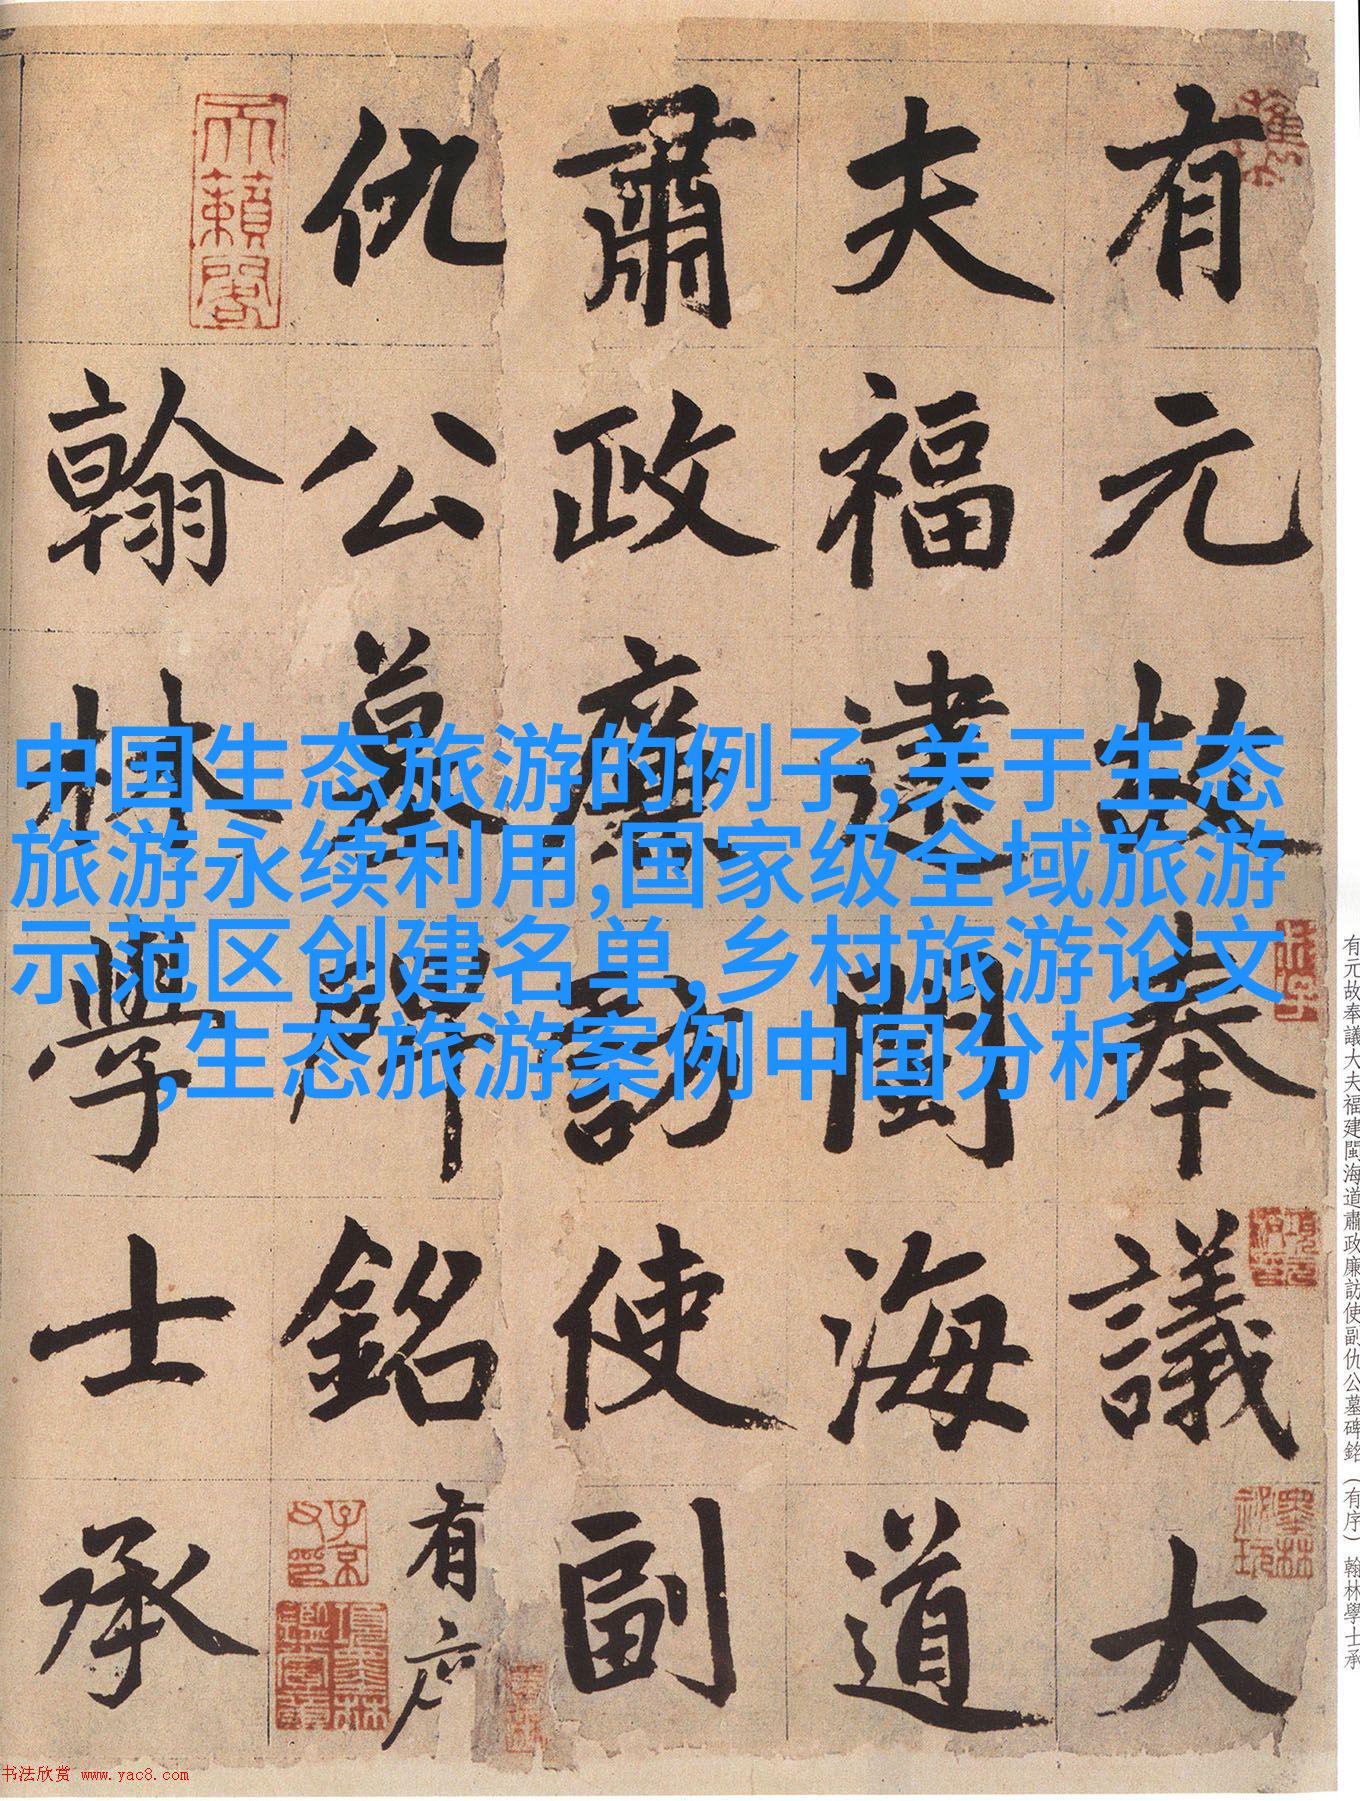 有元故奉議大
夫福建閩海道
肅政廉訪使副
仇公墓碑銘有序
翰林學士承
天籟閣
子京父印
項墨林鑑賞章
中国生态旅游的例子,关于生态
旅游永续利用,国家级全域旅游
示范区创建名单,乡村旅游论文
,生态旅游案例中国分析
有元故奉議大夫福建閩海道肅政廉訪使副仇公墓碑銘(有序) 翰林學士承
书法欣赏 www.yac8.com